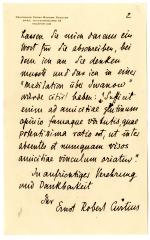 2
lassen Sie mich daraus ein
Wort für Sie abschreiben, bei
dem ich an Sie denken
musste und das ich in eine
"Meditation über Swanow"
würde citirt haben: "Sufficit
enim ad amicitiae glutinum
opinio famaque virtutis, quae
potentissima ratio est, ut inter
absentes et nunquam visos
amicitiae vinculum oriatur".
In aufrichtiger Verehrung
und Dankbarkeit
Ihr
Ernst Robert Curtius